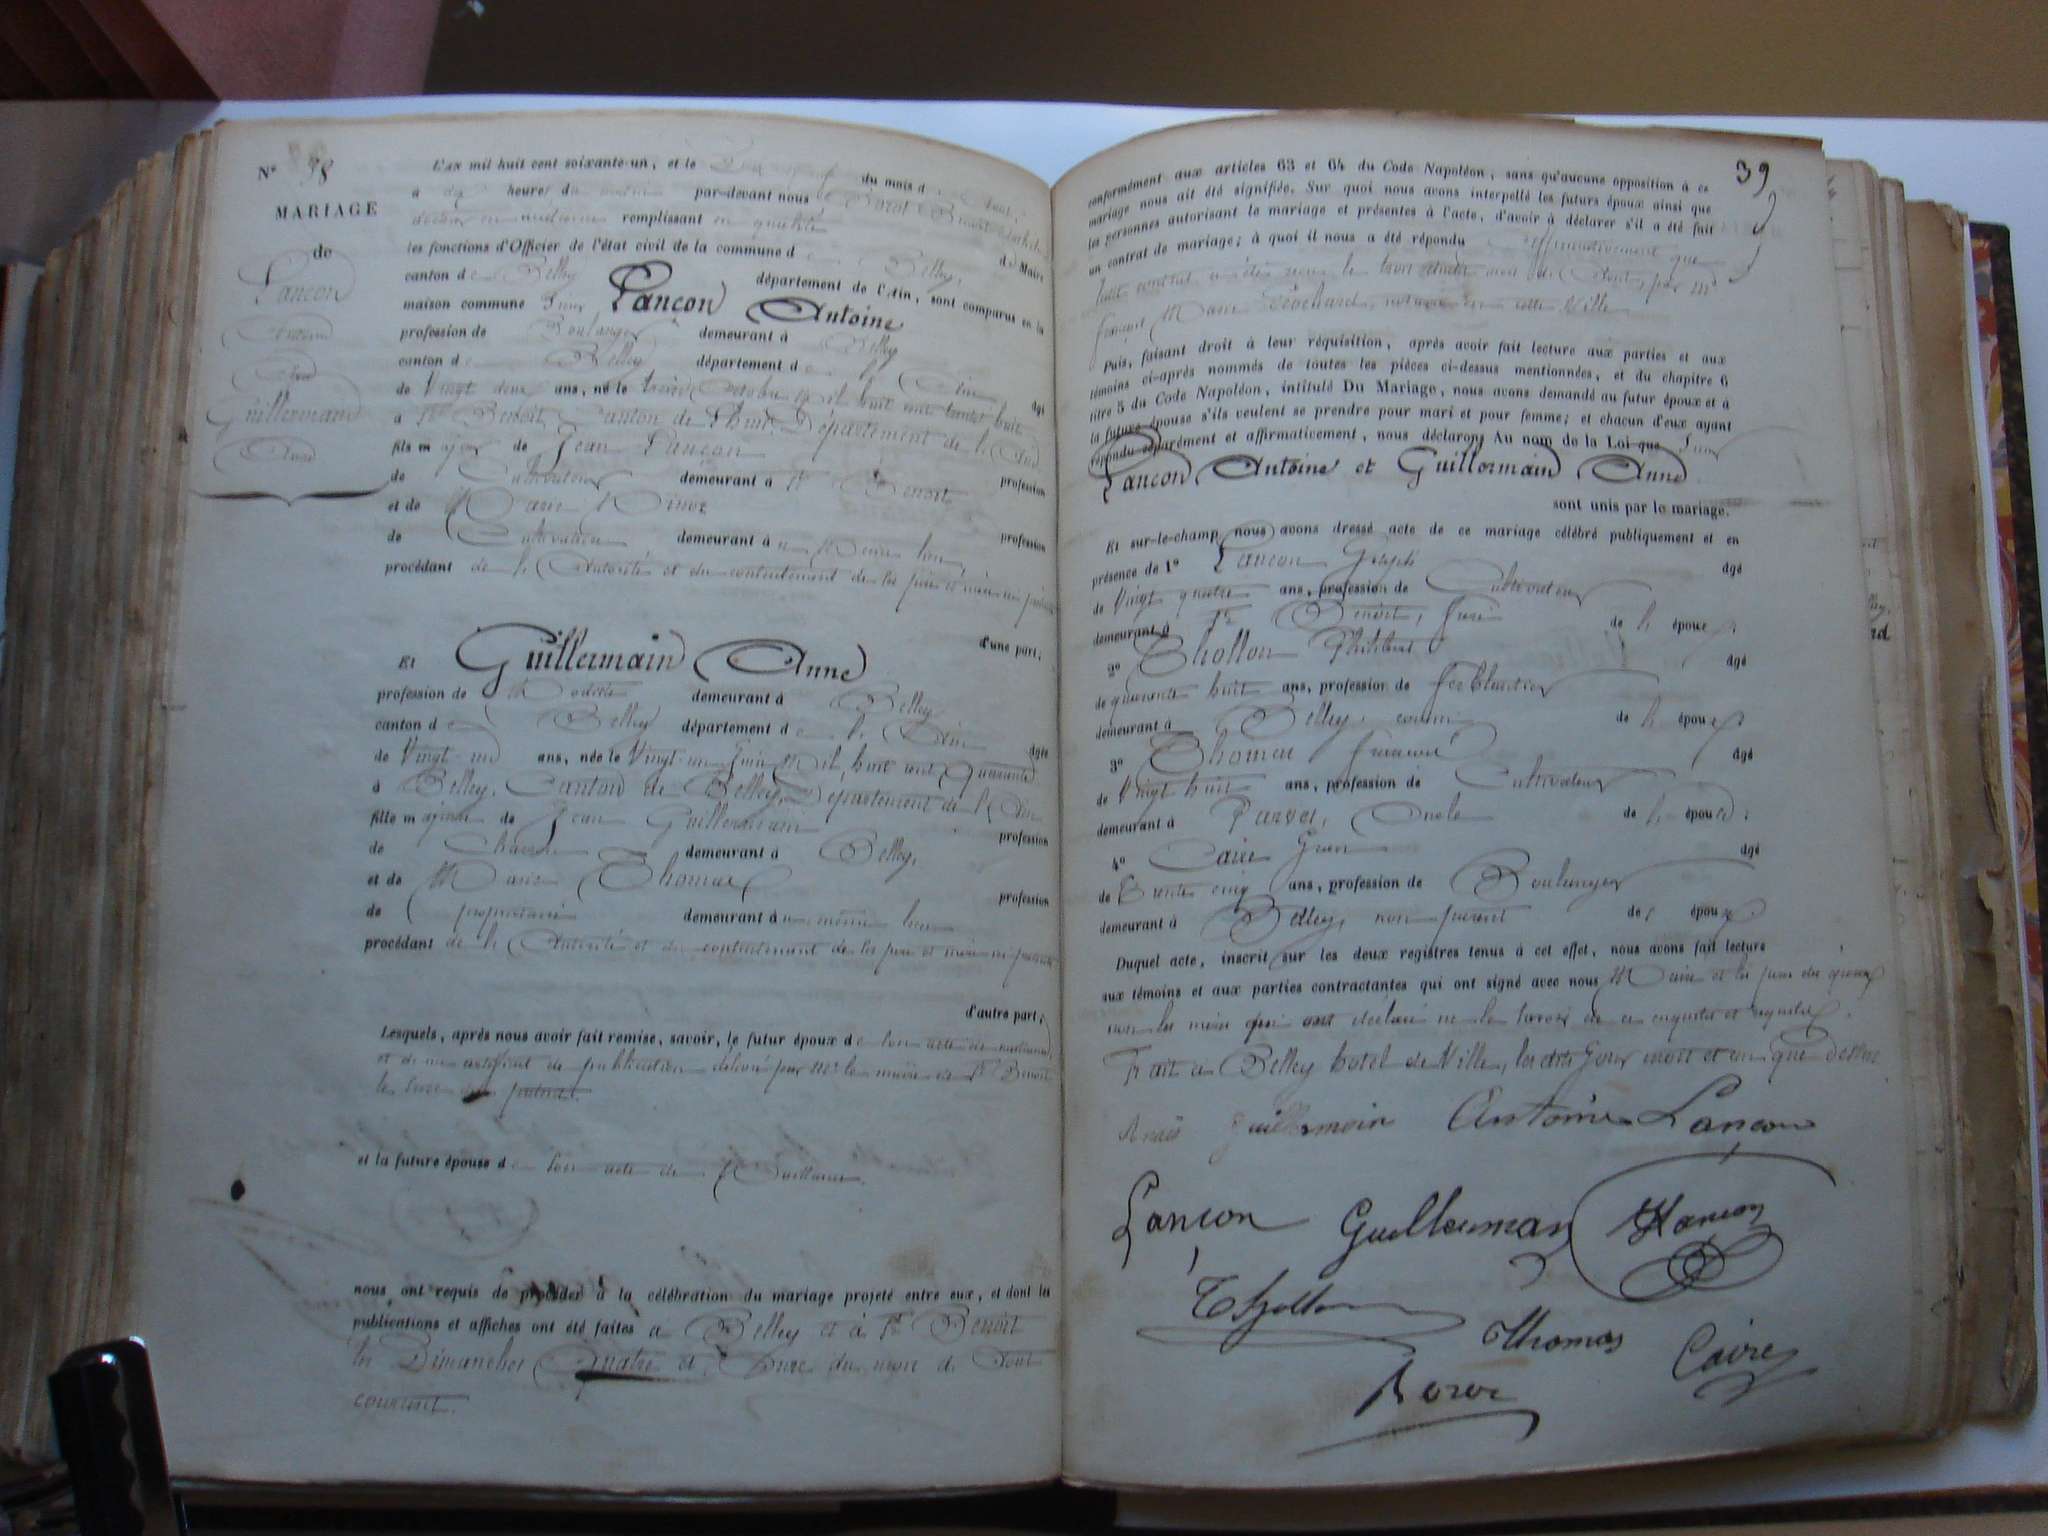 N° 38
MARIAGE
de
Lançon
Antoine
et
Guillermain
Anne
L'an mil huit cent soixante-un, et le du mois d Aout,
a dix heures du matin par-devant nous Borot Benoit
docteur en médecine remplissant en qualité de Maire
les fonctions d'Officier de l'état civil de la commune de Belley,
canton de Belley département de l'Ain, sont comparus en la
maison commune Sieur Lançon Antoine
profession de Boulanger demeurant à Belley
canton de Belley département de l'Ain âgé
de Vingt deux ans, né le treize Octobre Mil huit cent trente huit
a St Benoit, Canton de Lhuis, Département de l'Ain
fils majeur de Jean Lançon profession
de Cultivateur demeurant à St Benoit
et de Marie profession
de Cultivatrice demeurant à u même lieu,
procédant de l'Autorité et du contentement de ses père et mère ici présents
d'une part;
Et Guillermain Anne
profession de Modiste demeurant à Belley
canton de Belley département de l'Ain âgée
de Vingt-un ans, née le Vingt-un Juin Mil huit cent Quarante
à Belley, Canton de Belley, Département de l'Ain
fille majeure de Jean Guillermain profession
de demeurant à Belley,
et de Marie Thomas profession
de propriétaire demeurant à u même lieu
procédant de l'Autorité et du contentement de ses père et mère ici présents
d'autre part;
Lesquels, après nous avoir fait remise, savoir, le futur époux de son acte de naissance,
et de un certificat de publication délivré par Mr le maire de St Benoit
le
et la future épouse de son acte de Naissance.
nous ont requis de procéder à la célébration du mariage projeté entre eux, et dont les
publications et affiches ont été faites à Belley et à St Benoit
les Dimanches Quatre et Onze du mois d'Aout
courant.
39
conformément aux articles 63 et 64 du Code Napoléon, sans qu'aucune opposition à ce
mariage nous ait été signifiée. Sur quoi nous avons interpellé les futurs époux ainsi que
les personnes autorisant le mariage et présentes à l'acte, d'avoir à déclarer s'il a été fait
un contrat de mariage; à quoi il nous a été répondu affirmativement que
contrat a été reçu le trois dudit mois d'Aout, par Me
François Marie notaire en cette Ville
Puis, faisant droit à leur réquisition, après avoir fait lecture aux parties et aux
témoins ci-après nommés de toutes les pièces ci-dessus mentionnées, et du chapitre 6
titre 5 du Code Napoléon, intitulé Du Mariage, nous avons demandé au futur époux et à
la future épouse s'ils veulent se prendre pour mari et pour femme; et chacun d'eux ayant
répondu séparément et affirmativement, nous déclarons Au nom de la Loi que Sieur
Lançon Antoine et Guillermain Anne
sont unis par le mariage.
Et sur-le-champ nous avons dressé acte de ce mariage célébré publiquement et en
présence de 1° Lançon Joseph âgé
de Vingt quatre ans, profession de Cultivateur
demeurant à St Benoit, frère de l'époux,
2° Thollon Philibert âgé
de quarante huit ans, profession de ferblantier
demeurant à Belley, cousin de l'époux
3° Thomas François âgé
de Vingt huit ans, profession de Cultivateur
demeurant à Parves, Oncle de l'épouse,
4° Caire âgé
de Trente cinq ans, profession de Boulanger
demeurant à Belley, non parent des époux
Duquel acte, inscrit sur les deux registres tenus à cet effet, nous avons fait lecture
aux témoins et aux parties contractantes qui ont signé avec nous Maire et les pères des époux
non les mères qui ont déclaré ne le savoir de ce enquises et requises.
Fait à Belley hotel de Ville, lesdits Jour mois et an que dessus
Anaïs Guillermain Antoine Lançon
Lançon Guillermain Lançon
Thollon Thomas Caire